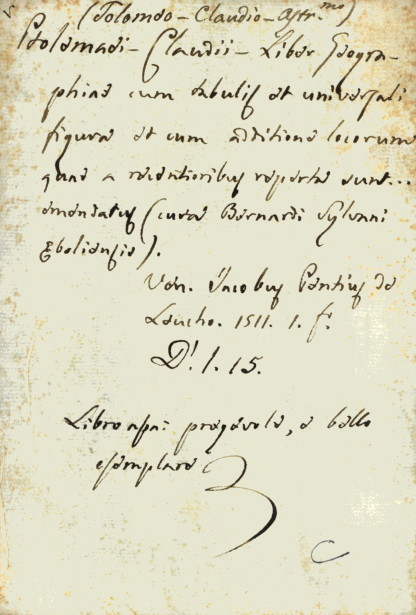 (Tolomeo - Claudio - Astr.mo)
Ptolemaei - Claudii - Liber Geogra-
phiae cum tabulis et universali
figura et cum additione locorum
quae a recentioribus reperta sunt...
emendatus (cura Bernardi Sylvani
Eboliensis).
Ven. Jacobus Pentius de
Leucho. 1511. 1. f.
D. 1. 15.
Libro pregevole, e bello
esemplare
C